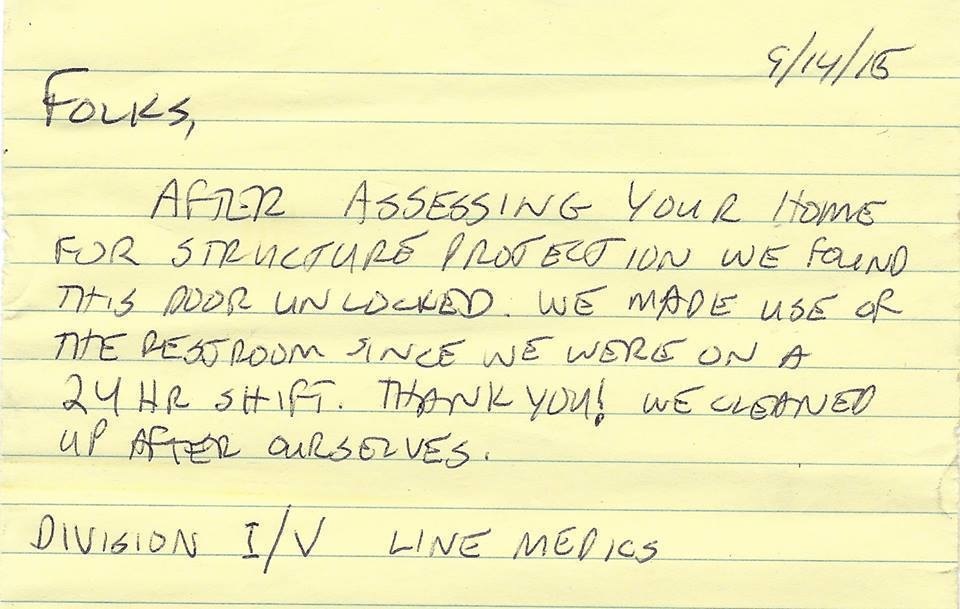 9/14/15
FOLKS,
AFTER ASSESSING YOUR HOME
FOR STRUCTURE PROTECTION WE FOUND
THIS DOOR UNLOCKED. WE MADE USE OF
THE RESTROOM SINCE WE WERE ON A
24 HR SHIFT. THANK YOU! WE CLEANED
UP AFTER OURSELVES.
DIVISION I/V LINE MEDICS